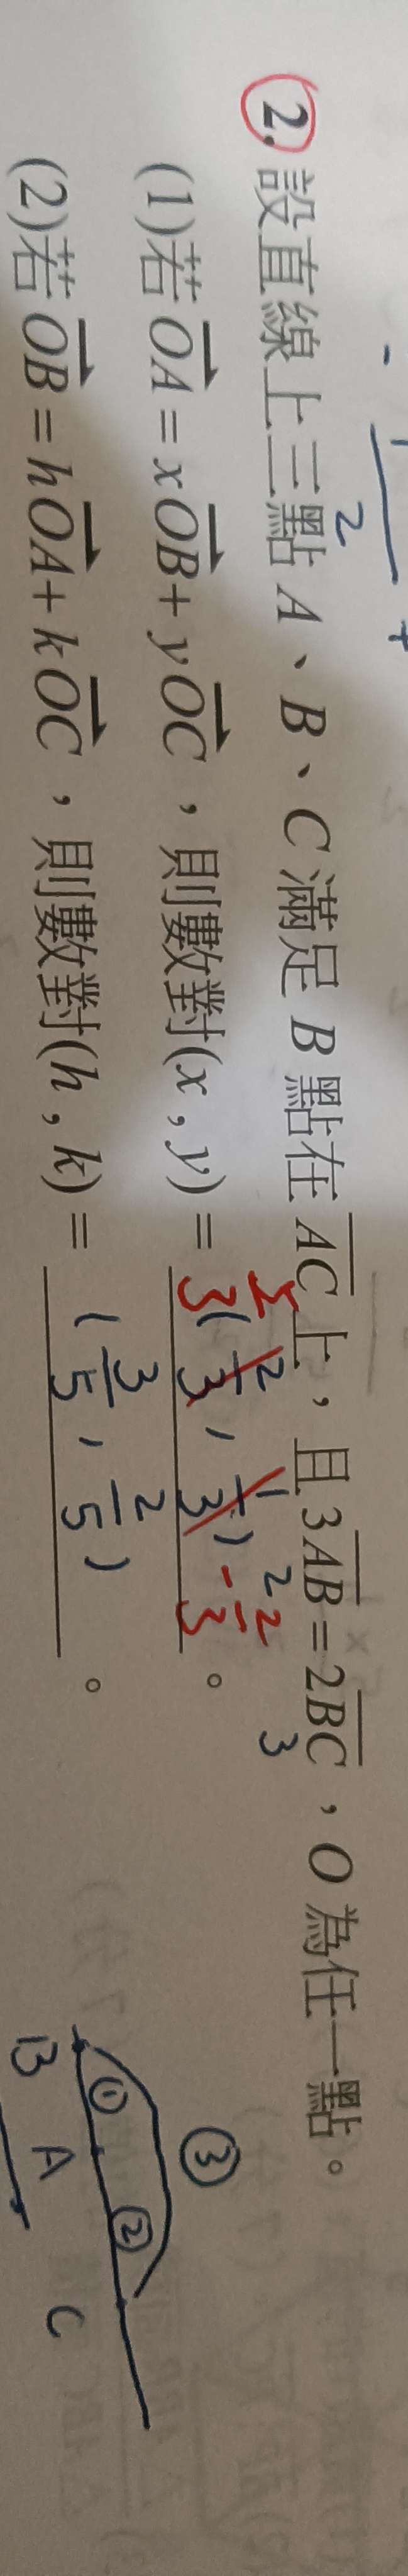 2. 設直線上三點 A、B、C 滿足 B 點在 AC 上，且 3AB = 2BC，O 為任一點。
2 2 3
(1)若 OA = xOB + yOC，則數對(x , y) = (2/3, 1/3) 5/3 -2/3 。
(2)若 OB = hOA + kOC，則數對(h , k) = (3/5, 2/5) 。
③
① ②
B A C